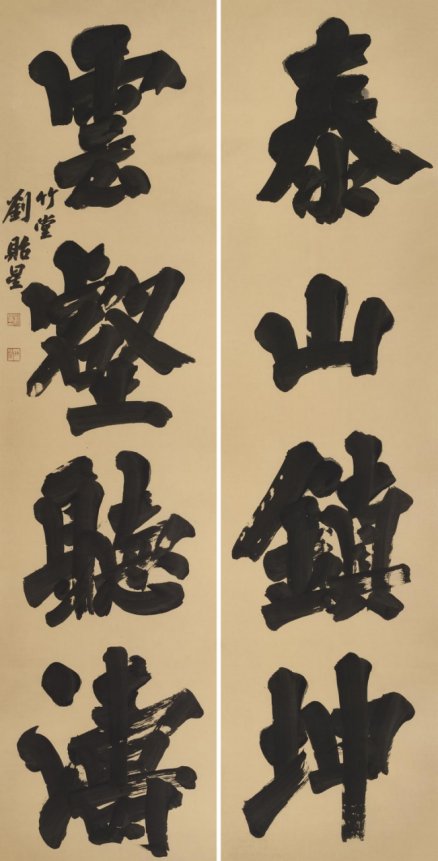 泰山鎮坤
雲壑聽濤
竹堂
劉貽星